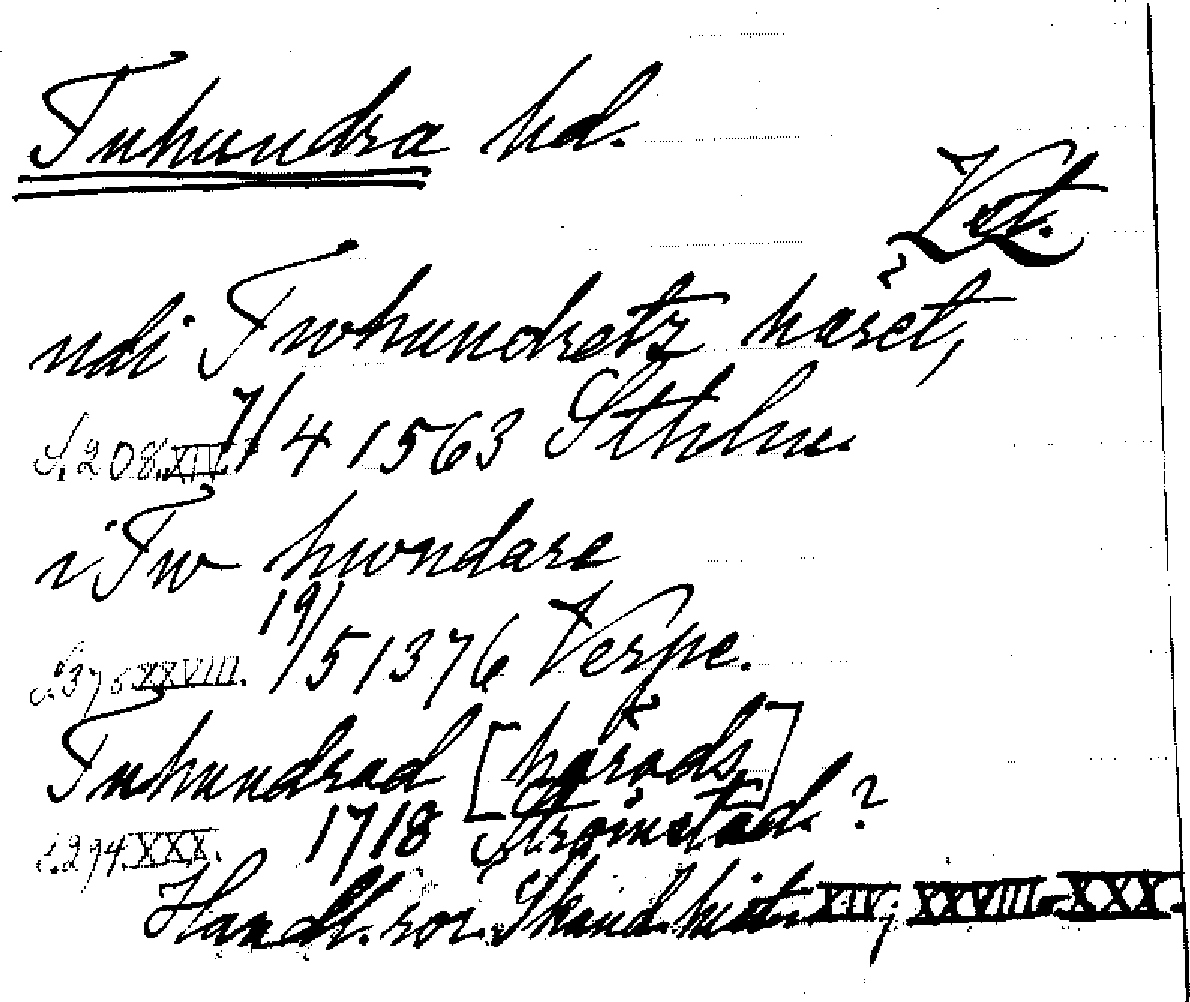 Tuhundra hd.
Vet.
udi Twhundretz häret,
s. 208. XIV. 7/4 1563 Sthlm.
i Tw hwndare
s. 376 XXVIII. 19/5 1376 Verpe.
Tuhundrad [härads]
s. 294 XXX. 1718 Strömstad. ?
Handl. rör. Skand. hist. XIV; XXVIII. XXX.